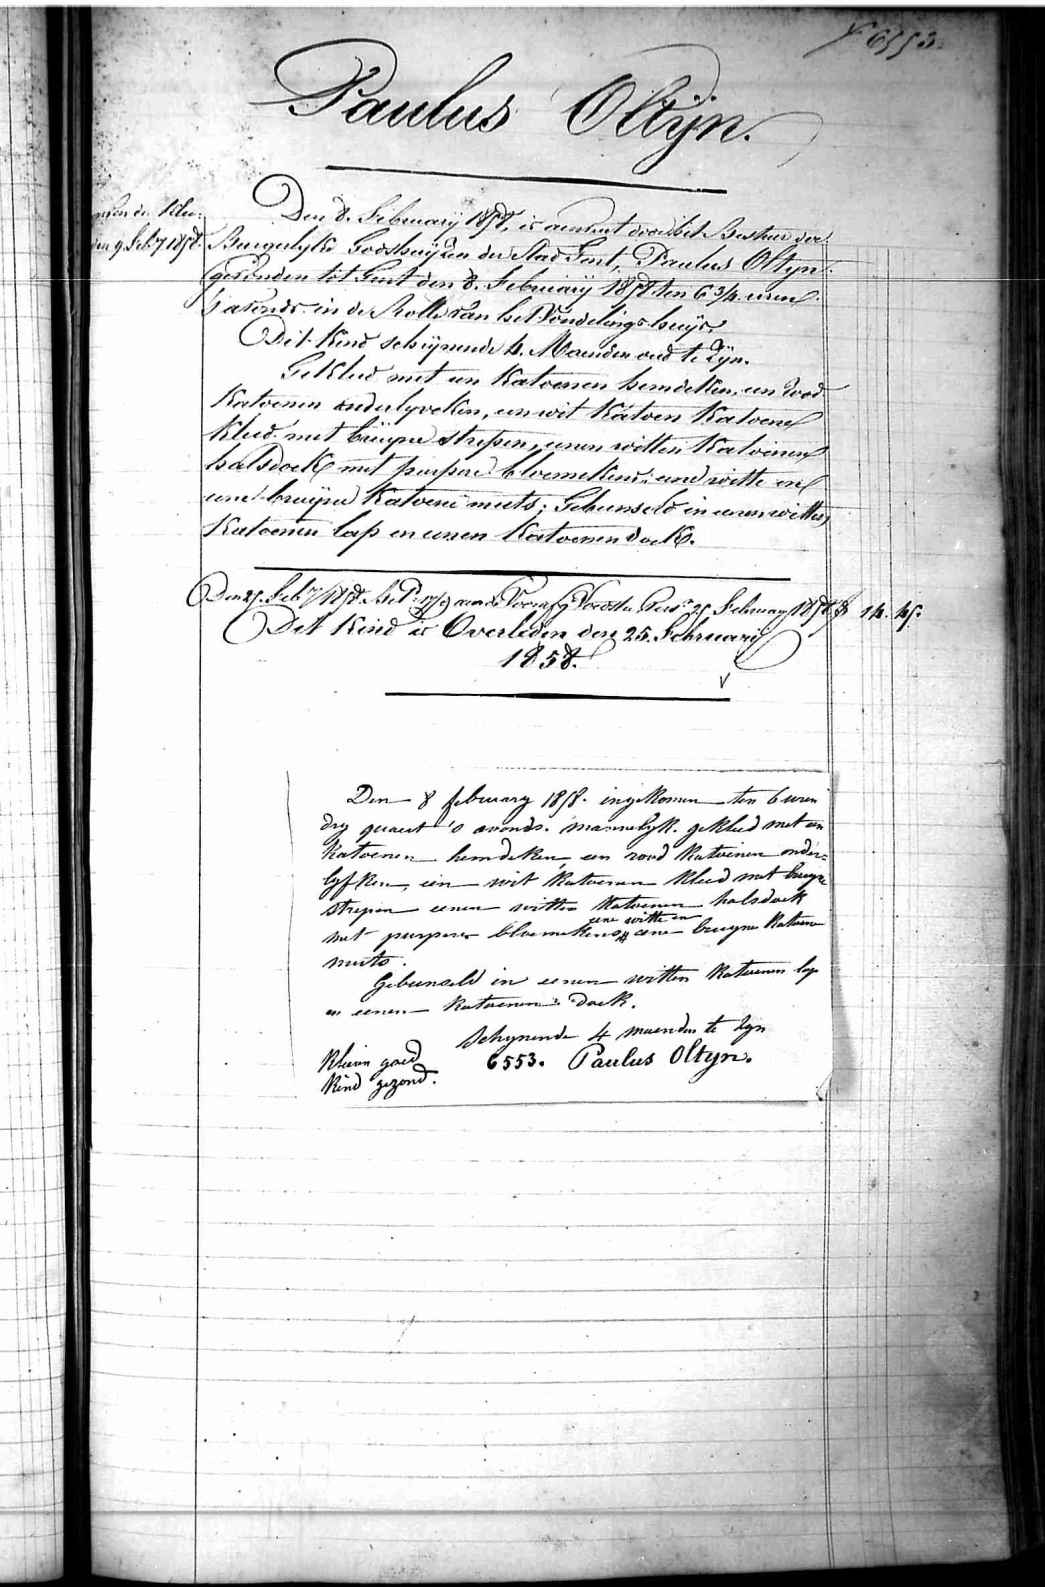 6553.
Paulus Oltyn.
den 9. Feb.y 1858.
Den 8. February 1858, is aenveert door het Bestuer der
Burgerlyke Godshuyzen der Stad Gent, Paulus Oltyn.
gevonden tot Gent den 8. February 1858. ten 6 3/4 uren
s'avonds in de Rolle van het Vondelingshuys.
Dit Kind schynende 4. Maenden oud te Zyn.
Gekleed met een Katoenen hemdeken, een rood
Katoenen onderlyveken, een wit Katoen Katoene
kleed met bruyne strepen, eenen witten Katoenen
halsdoek met purpere bloemekens; eene witte en
eene bruyne Katoene muts; Gebunseld in eenen witten
Katoenen lap en eenen Katoenen doek.
Den 25. Feb.y 1858. aen de 25 February 1858. 14. 45.
Dit Kind is Overleden den 25. February
1858.
Den 8 february 1858. ingekomen ten 6 uren
dry quaert 's avonds. mannelyk. gekleed met een
katoenen hemdeken, een rood katoenen onder=
lyfken, een wit katoenen kleed met bruyne
strepen eenen witten katoenen halsdoek
met purpere bloemekens, eene witte en eene bruyne katoene
muts.
Gebunseld in eenen witten katoenen lap
en eenen katoenen doek.
Schynende 4 maenden te zyn
Kleein goed
6553. Paulus Oltyn.
Kind gezond.